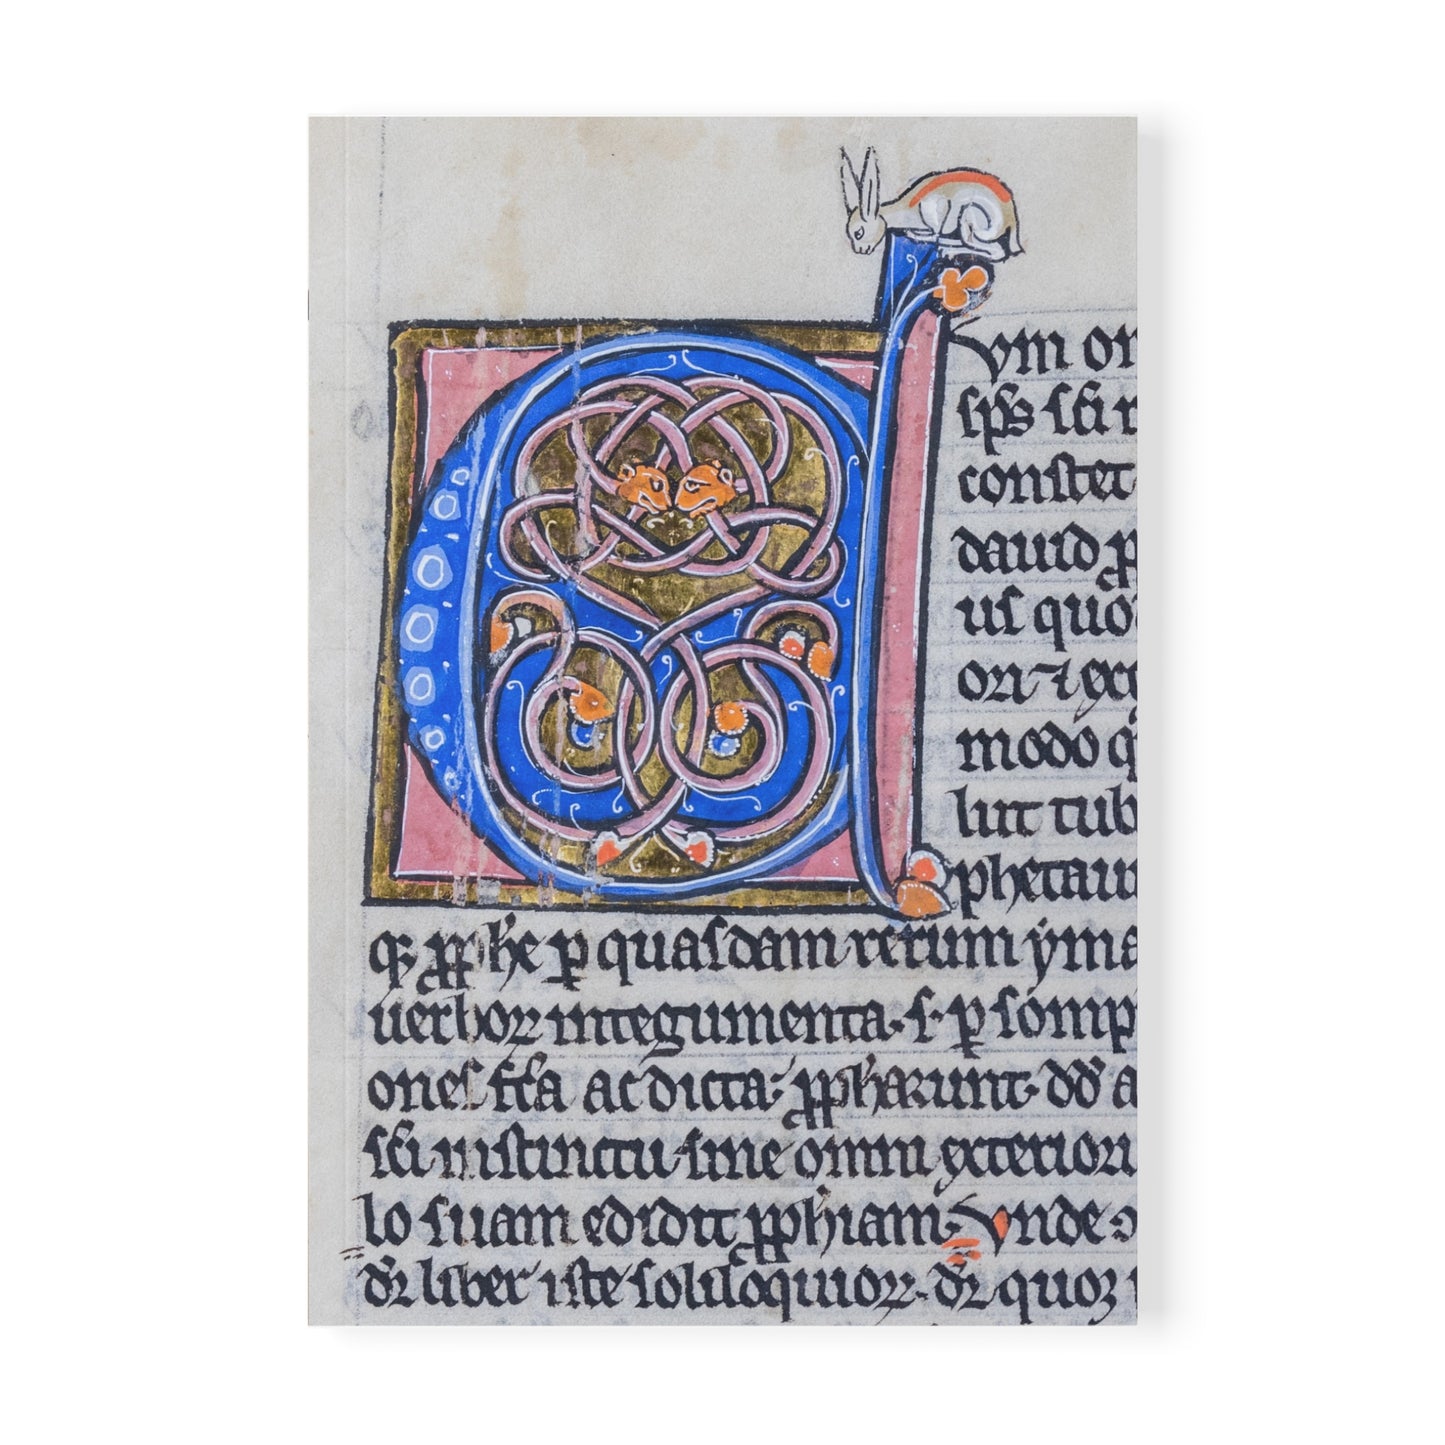 C
Vm om
sp̄s sc̄i r
constet
dauid p
us quo
ori ⁊ exce
modo q̄
lut tub
phetauı
q; p̱p̱he p̱ quasdam rerum ẏma
uerboꝝ integumenta. s. p̱ somp
ones fc̄a ac dicta. p̱p̱harunt. dd̄ a
sc̄i instinctu sine omni exteriori
lo suam edidit p̱p̱hiam. Vnde ꝯ
dr̄ liber iste soliloquioꝝ. dr̄ quoꝫ